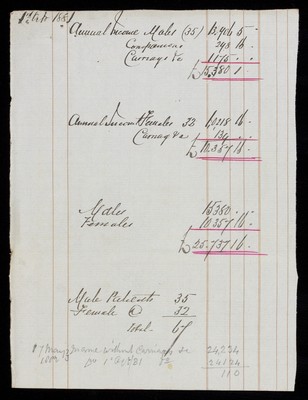 1st Oct 1881
Annual Income Males (35) 13,906 5 -
Companions 298 16 -
Carriage &c 1175 - -
£ 15.380 1 -
Annual Income Females 32 10,218 16 -
Carriage &c 139 - -
£ 10.357 16 -
Males 15380 - -
Females 10.357 16 -
£ 25.737 16 -
Male Patients 35
Female @ 32
Total 67
Income without Carriages &c 24,234
Do 1st Oct 81 24124
110